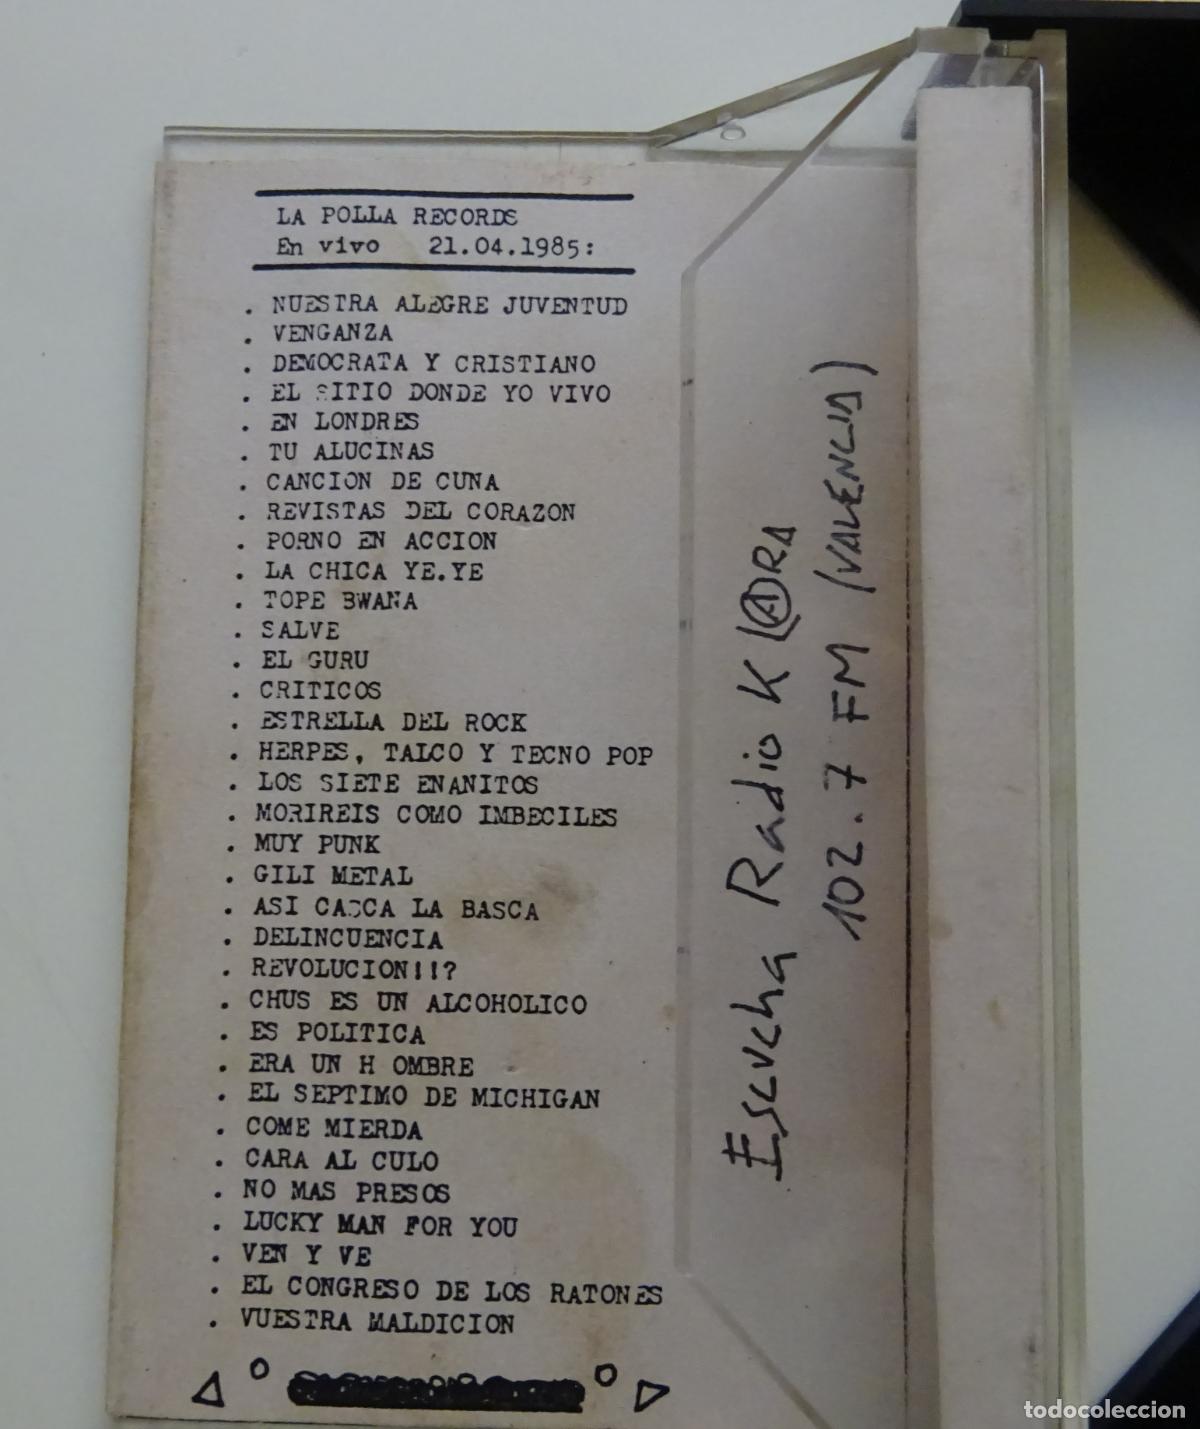 LA POLLA RECORDS
En vivo 21.04.1985:
. NUESTRA ALEGRE JUVENTUD
. VENGANZA
. DEMOCRATA Y CRISTIANO
. EL SITIO DONDE YO VIVO
. EN LONDRES
. TU ALUCINAS
. CANCION DE CUNA
. REVISTAS DEL CORAZON
. PORNO EN ACCION
. LA CHICA YE.YE
. TOPE BWANA
. SALVE
. EL GURU
. CRITICOS
. ESTRELLA DEL ROCK
. HERPES, TALCO Y TECNO POP
. LOS SIETE ENANITOS
. MORIREIS COMO IMBECILES
. MUY PUNK
. GILI METAL
. ASI CASCA LA BASCA
. DELINCUENCIA
. REVOLUCION!!?
. CHUS ES UN ALCOHOLICO
. ES POLITICA
. ERA UN H OMBRE
. EL SEPTIMO DE MICHIGAN
. COME MIERDA
. CARA AL CULO
. NO MAS PRESOS
. LUCKY MAN FOR YOU
. VEN Y VE
. EL CONGRESO DE LOS RATONES
. VUESTRA MALDICION
Escucha Radio KLARA
102.7 FM (VALENCIA)
todocoleccion